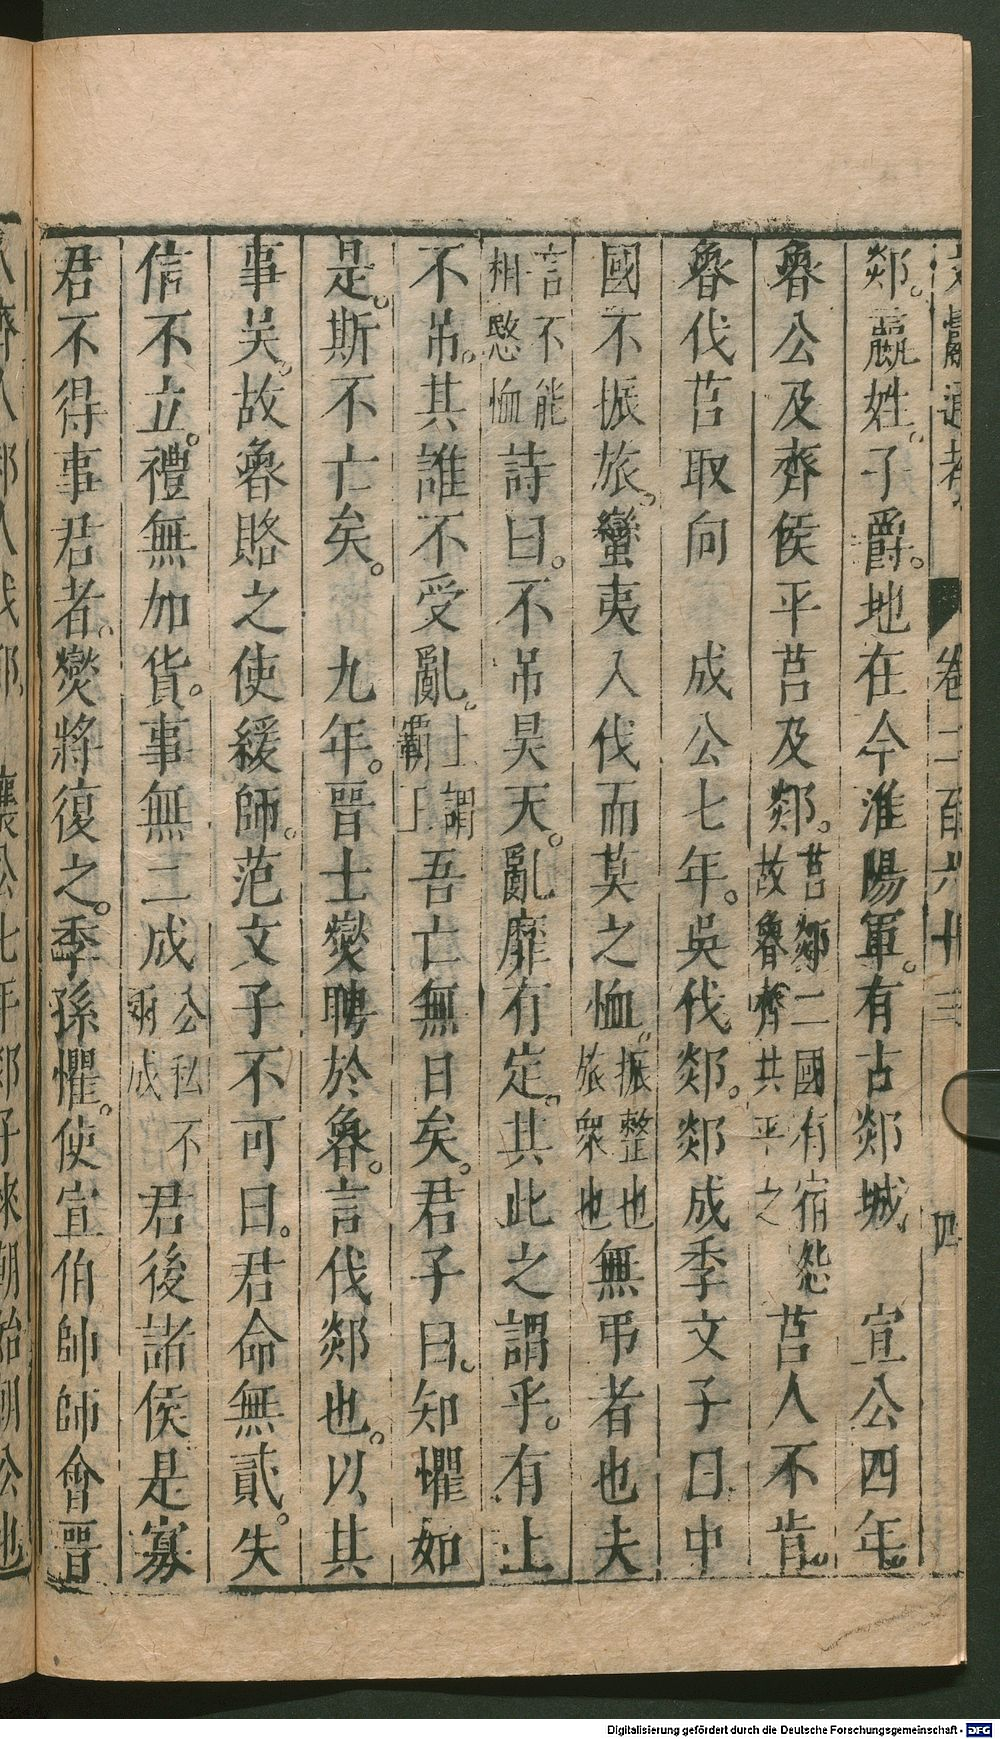 文獻通考 卷二百六十三 四
郯。嬴姓。子爵。地在今淮陽軍。有古郯城 宣公四年。
魯公及齊侯平莒及郯。莒郯二國有宿怨故魯齊共平之莒人不肯。
魯伐莒取向 成公七年。吳伐郯。郯成季文子曰中
國不振旅。蠻夷入伐而莫之恤。振整也旅衆也無弔者也夫
言不能相愍恤詩曰。不吊昊天。亂靡有定。其此之謂乎。有上
不吊。其誰不受亂。上謂霸上吾亡無日矣。君子曰。知懼如
是。斯不亡矣。 九年。晉士燮聘於魯。言伐郯也。以其
事吳。故魯賂之使緩師。范文子不可曰。君命無貳。失
信不立。禮無加貨。事無二成公私不兩成君後諸侯是寡
君不得事君者。燮將復之。季孫懼。使宣伯帥師會晉
襄公七年郯子來朝始朝公也
Digitalisierung gefördert durch die Deutsche Forschungsgemeinschaft - DFG